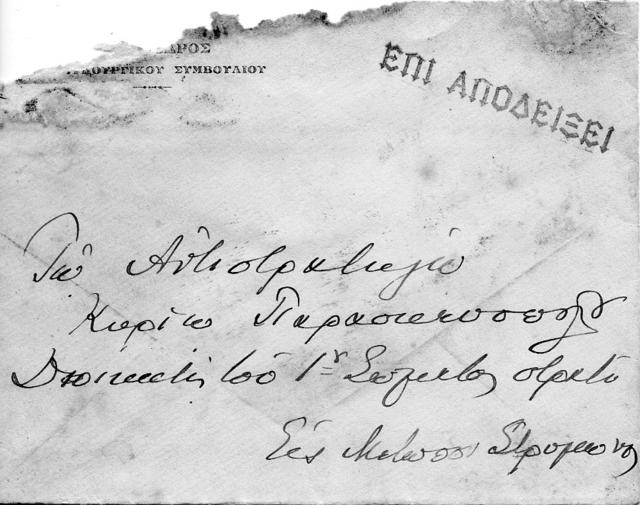 ΔΡΟΣ
ΟΥΡΓΙΚΟΥ ΣΥΜΒΟΥΛΙΟΥ
ΕΠΙ ΑΠΟΔΕΙΞΕΙ
Τῷ Ἀντιστρατήγῳ
Κυρίῳ Παρασκευοπούλῳ
Διοικητῇ τοῦ 1ου Σώματος στρατοῦ
Εἰς Μέτωπον Στρυμόνος